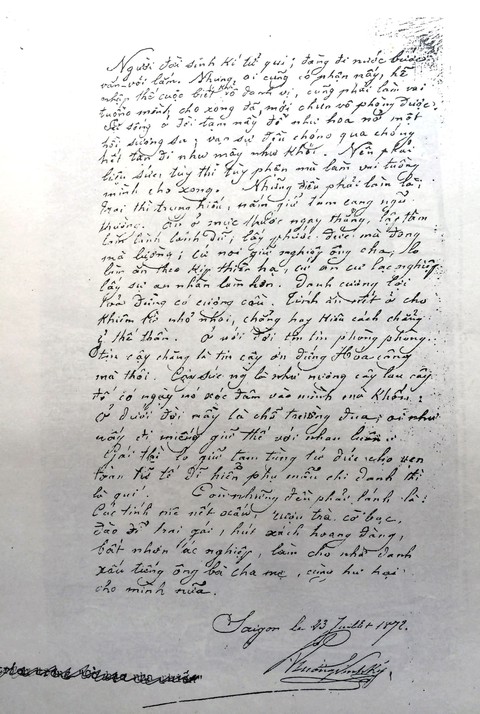 Người đời sinh kí tử qui; đàng đi nước bước
vắn-vỏi lắm. Nhưng, ai cũng có phận nấy, hễ
nhập thế cuộc bất khả vô danh vị, cũng phải làm vai
tuồng mình cho xong đã mới chun vô phòng được.
Sự sống ở đời tạm nầy đỏ như hoa nở một
hồi, sương sa; vạn sự đều chóng qua chóng
hết tan đi như mây như khói. Nên phải
liệu sức, tùy thì tùy phận mà làm vai tuồng
mình cho xong. Những điều phải làm là;
trai thì trung hiếu, nắm giữ tam cang ngũ
thường. Ăn ở mực thước ngay thẳng,
làm lành lánh dữ; lấy phước đức mà đong
mà lường; cứ nơi giữ nghiệp ông cha, lo
làm ăn theo kịp thiên hạ, cứ an cư lạc nghiệp
lấy sự an nhàn làm hơn. Danh cương lợi
tỏa đừng có cưỡng cầu. Tánh ở cho
khiêm nhỏ nhoi, chẳng hay
ỷ thế thần. Ở với đời
cậy chẳng là tin cậy ơn đấng Hóa công
mà thôi. Cậy sức nó là như miếng cây lau cây
có ngày nó xóc đâm vào mình mà khốn.
Ở dưới đời nầy là chỗ trường đua; ai như
nấy đi miễng giữ thế với nhau luôn
Gái thì lo giữ tam tùng tứ đức cho vẹn
toàn tử tế để hiển phụ mẫu chi danh thì
là quí. Còn những đều phải lánh là:
Các tính mê nết xấu; rượu trà, cờ bạc,
đào đĩ trai gái, hút xách hoang đàng,
bất nhơn ác nghiệp, làm cho nhơ danh
xấu tiếng ông bà cha mẹ, cùng hư hại
cho mình nữa.
Saigon le 23 Juillet 1872.
Trương Vĩnh Ký